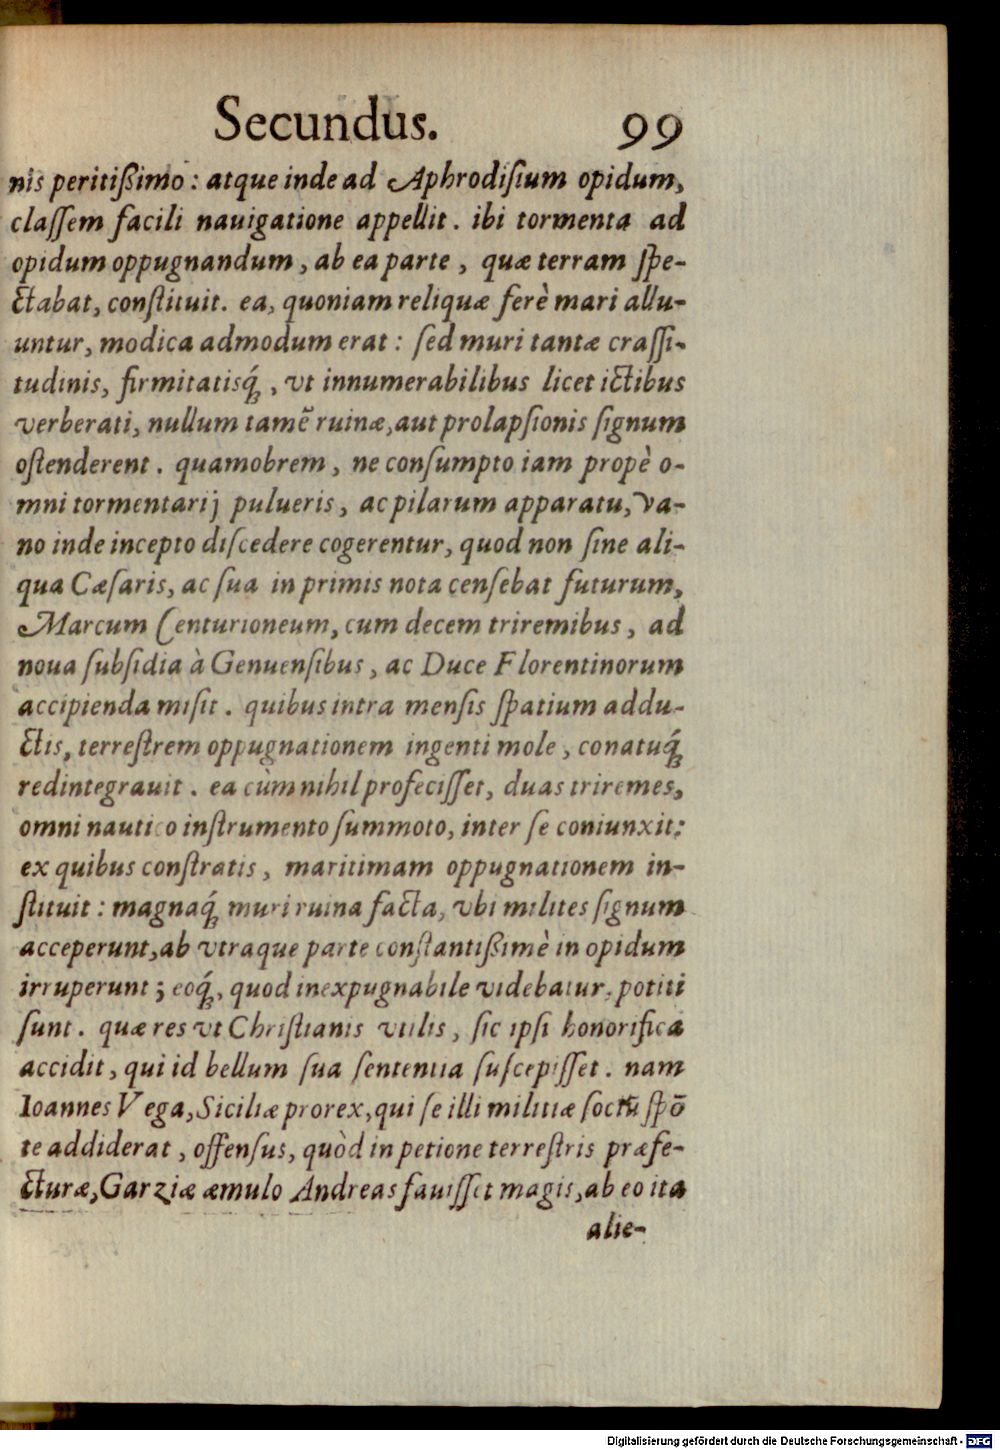 Secundus. 99
nis peritißimo : atque inde ad Aphrodiſium opidum,
claſſem facili nauigatione appellit . ibi tormenta ad
opidum oppugnandum , ab ea parte , quæ terram ſpe-
ctabat, conſtituit. ea, quoniam reliquæ ferè mari allu-
untur, modica admodum erat : ſed muri tantæ craſſi-
tudinis, firmitatisq́ꝫ , vt innumerabilibus licet ictibus
verberati, nullum tamẽ ruinæ, aut prolapſionis ſignum
oſtenderent . quamobrem , ne conſumpto iam propè o-
mni tormentarij pulueris , ac pilarum apparatu, va-
no inde incepto diſcedere cogerentur, quod non ſine ali-
qua Cæſaris, ac ſua in primis nota cenſebat futurum,
Marcum Centurioneum, cum decem triremibus , ad
noua ſubſidia à Genuenſibus , ac Duce Florentinorum
accipienda miſit . quibus intra menſis ſpatium addu-
ctis, terreſtrem oppugnationem ingenti mole , conatuq́ꝫ
redintegrauit . ea cùm nihil profeciſſet, duas triremes,
omni nautico inſtrumento ſummoto, inter ſe coniunxit:
ex quibus conſtratis , maritimam oppugnationem in-
ſtituit : magnaq́ꝫ muri ruina facta, vbi milites ſignum
acceperunt, ab vtraque parte conſtantißimè in opidum
irruperunt ; eoq́ꝫ, quod inexpugnabile videbatur, potiti
ſunt . quæ res vt Chriſtianis vtilis , ſic ipſi honorifica
accidit , qui id bellum ſua ſententia ſuſcepiſſet . nam
Ioannes Vega, Siciliæ prorex, qui ſe illi militiæ ſociũ ſpõ
te addiderat , offenſus, quòd in petione terreſtris præfe-
cturæ, Garziæ æmulo Andreas fauiſſet magis, ab eo ita
alie-
Digitalisierung gefördert durch die Deutsche Forschungsgemeinschaft - DFG